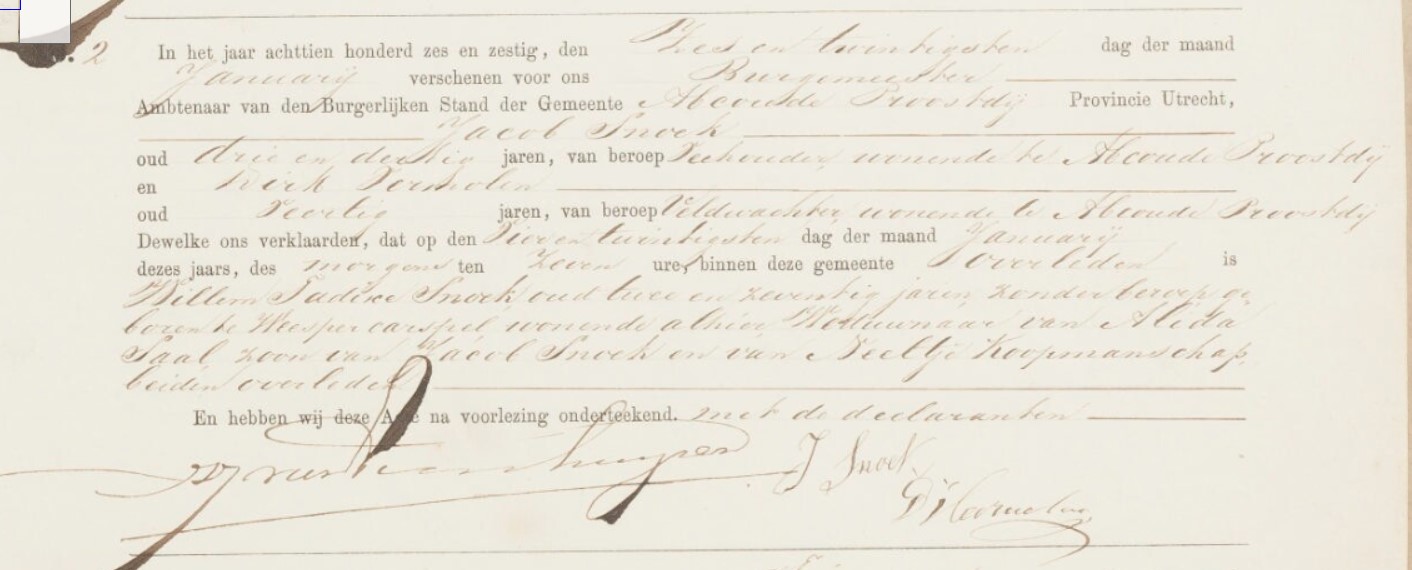 2 In het jaar achttien honderd zes en zestig, den Zes en twintigsten dag der maand
Januarij verschenen voor ons Burgemeester
Ambtenaar van den Burgerlijken Stand der Gemeente Abcoude Proostdij Provincie Utrecht,
Jacob Snoek
oud drie en dertig jaren, van beroep Veehouder, wonende te Abcoude Proostdij
en Dirk
oud Veertig jaren, van beroep Veldwachter wonende te Abcoude Proostdij
Dewelke ons verklaarden, dat op den Vier en twintigsten dag der maand Januarij
dezes jaars, des morgens ten Zeven ure, binnen deze gemeente overleden is
Willem Snoek oud twee en zeventig jaren, zonder beroep ge
boren te Weespercarspel, wonende alhier Weduwnaar van Alida
Saal zoon van Jacob Snoek en van Neeltje Koopmanschap,
beiden overleden
En hebben wij deze Acte na voorlezing onderteekend. met de declaranten
J Snoek